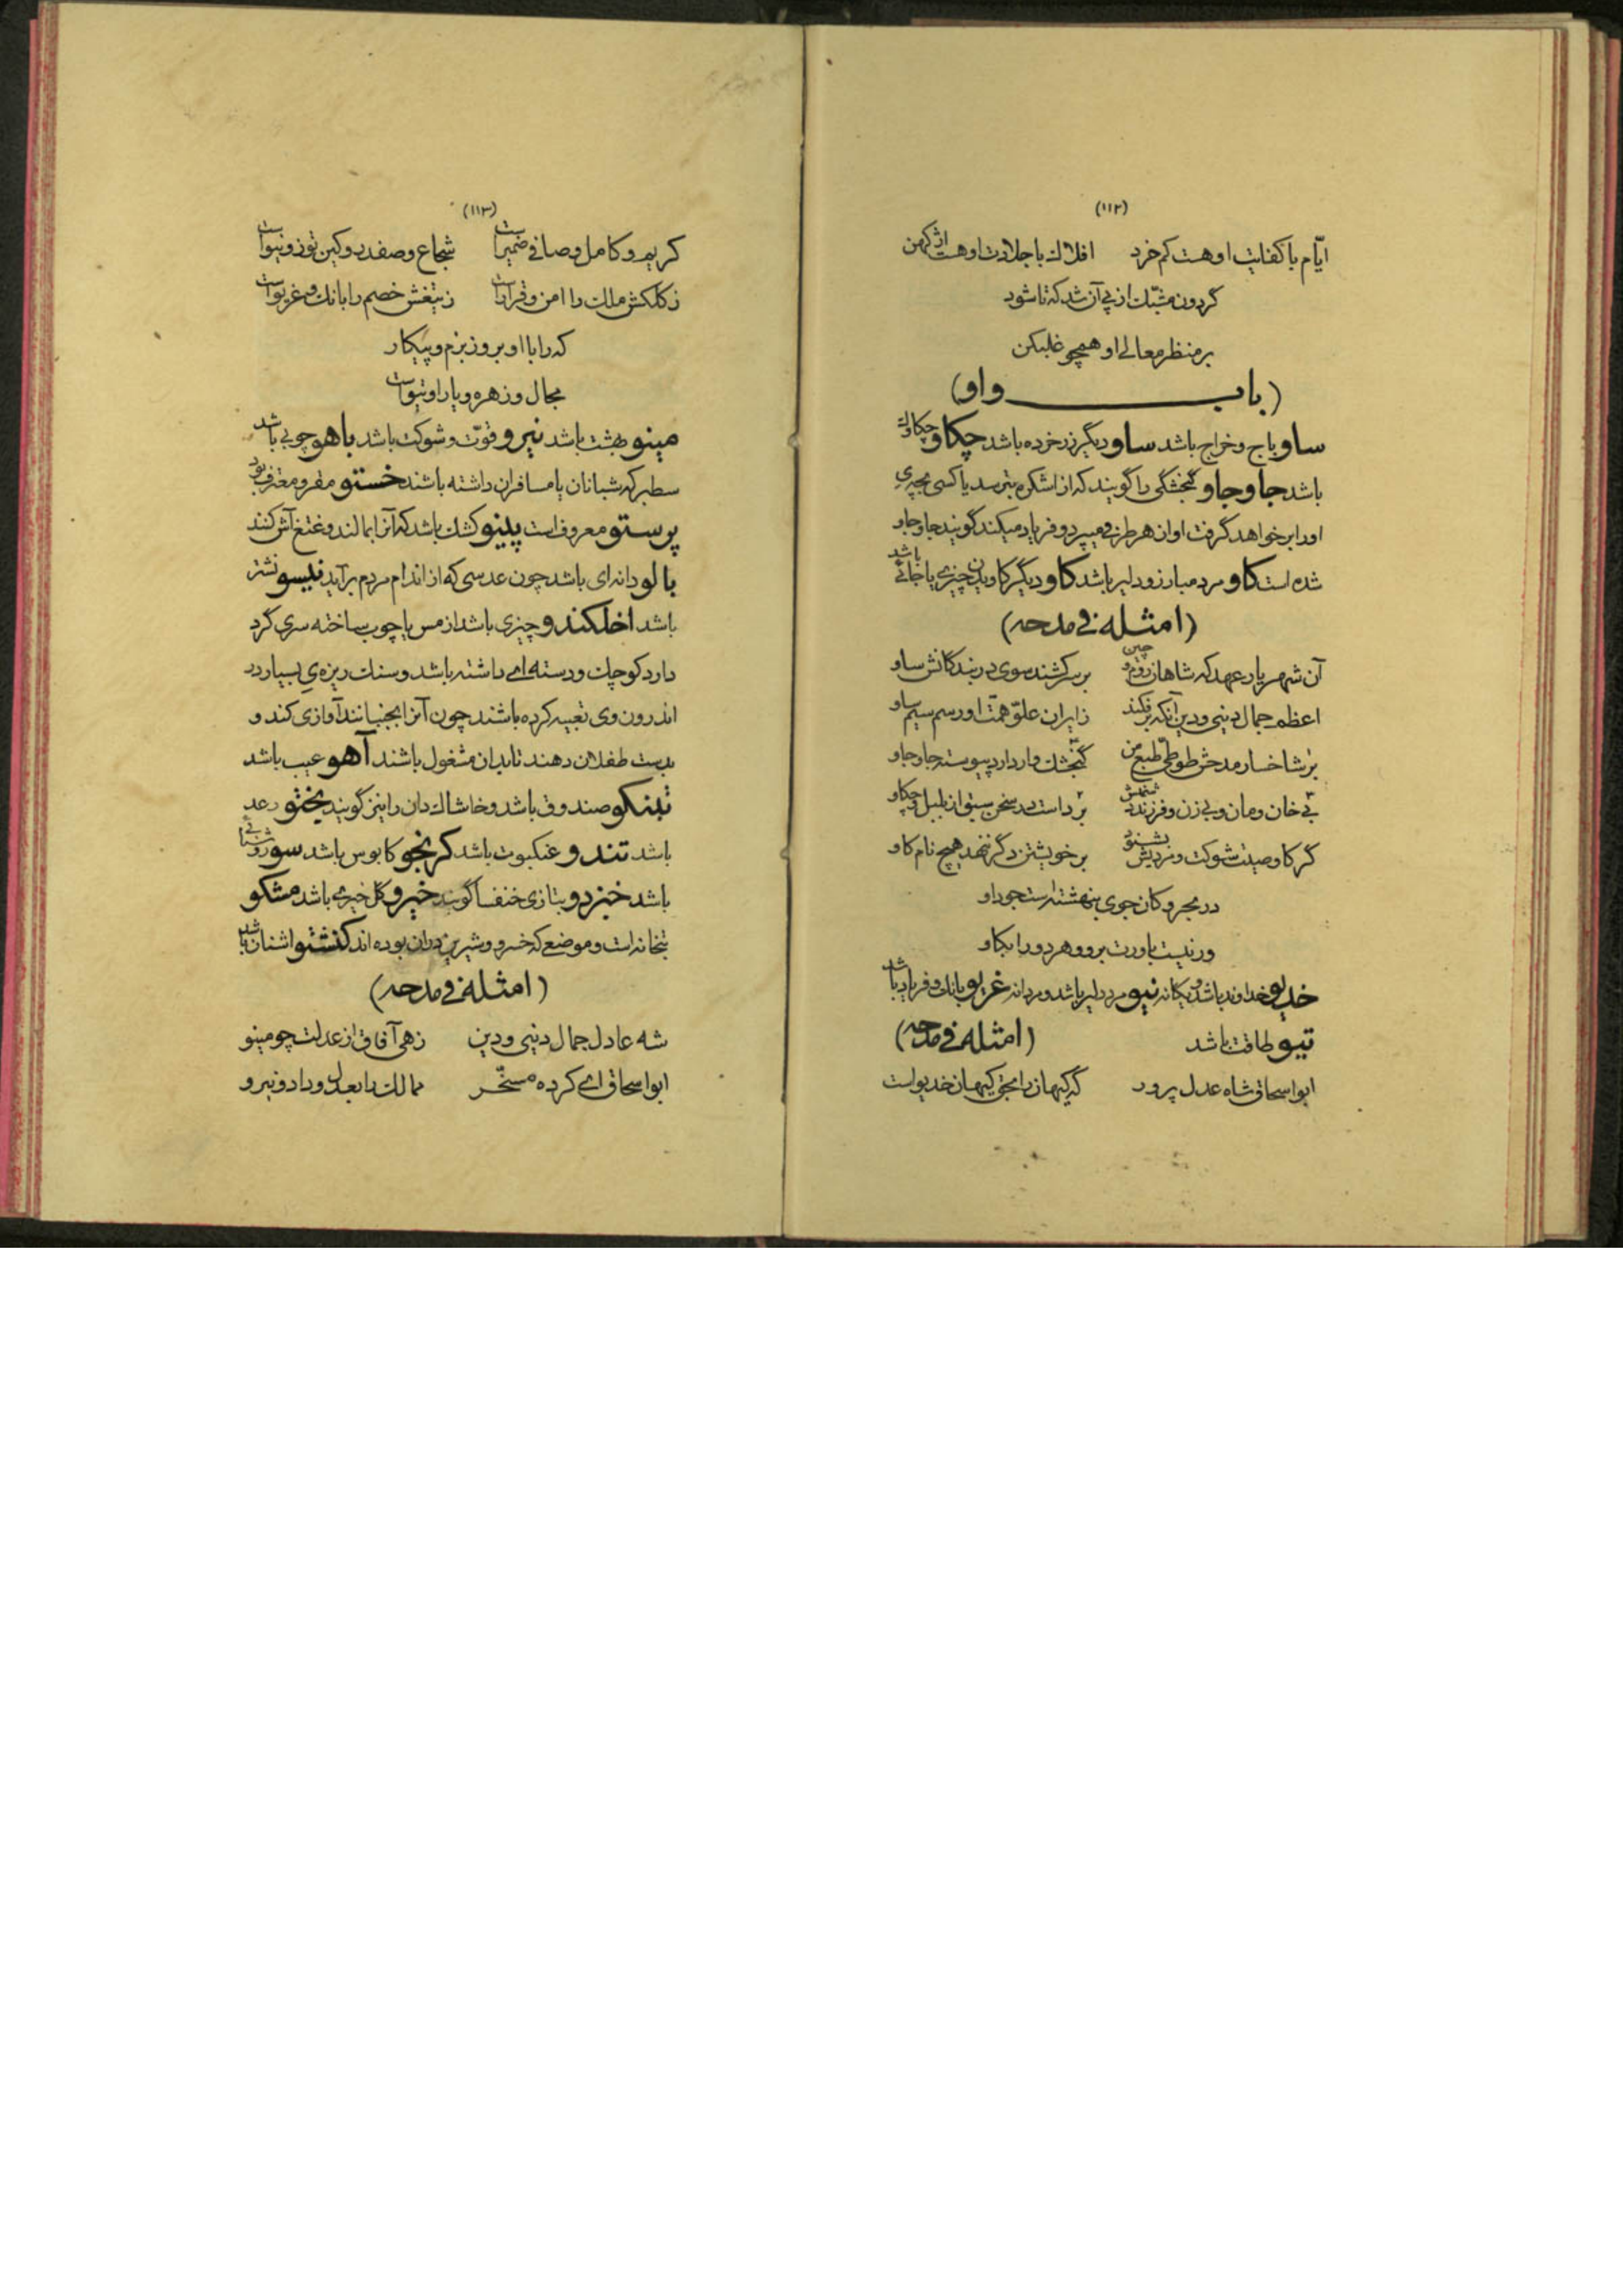 (۱۱۲)
ایّام با کفایت او هست کم خرد افلاک با جلادت او هست اژکهن
گردون مشبّک از پی آن شد که تا شود
بر منظر معالی او همچو غلبکن
(باب واو)
ساو باج و خراج باشد ساو دیگر زر خرده باشد چکاو چکاوک
باشد جاوجاو گنجشکی را گویند که از اشکره بترسد یا کسی بچه‌ی
او را بر خواهد گرفت او از هر طرفی میپرد و فریاد میکند گویند جاوجاو
شده است کاو مرد مبارز و دلیر باشد کاو دیگر کاویدن چیزی یا جائی باشد
(امثله فی مدحه)
آن شهریار عهد که شاهان روم و چین بر سر کشند سوی در بندگانش ساو
اعظم جمال دنیی و دین آنکه بر فکند ز ایران علوّ همّت او رسم سیم ساو
بر شاخسار مدحش طوطی طبع من گنجشک وار دارد پیوسته جاوجاو
بی خان و مان و بی زن و فرزند دشمنش بر داست در سخن سبق از بلبل و چکاو
گر کاو صیت شوکت و مردیش بشنود بر خویشتن دگر ننهد هیچ نام کاو
در بحر و کان جوی بنهشته است جود او
ور نیست باورت برو و هر دو را بکاو
خدیو خداوند باشد و یگانه نیو مرد دلیر باشد و مردانه غریو بانگ و فریاد باشد
تیو طاقت باشد (امثله فی مدحه)
ابو اسحاق شاه عدل پرور که کیهان را بحق کیهان خدیوست
(۱۱۳)
کریم و کامل و صافی ضمیرست شجاع و صفدر و کین توز و نیوست
ز کلکش ملک را امن و قرارست ز تیغش خصم را بانگ و غریوست
که را با او بروز بزم و پیکار
مجال و زهره و یارا و تیوست
مینو بهشت باشد نیرو قوّت و شوکت باشد باهو چوبی باشد
سطبر که شبانان یا مسافران داشته باشند خستو مقر و معترف بود
پرستو معروف است پینو کشک باشد که آنرا بمالند و غتغ آش کنند
بالو دانه‌ای باشد چون عدسی که از اندام مردم برآید نیسو نشتر
باشد اخلکندو چیزی باشد از مس یا چوب ساخته سری گرد
دارد کوچک و دسته‌ای داشته باشد و سنک ریزه‌ی بسیار در
اندرون وی تعبیه کرده باشند چون آنرا بجنبانند آوازی کند و
بدست طفلان دهند تا بدان مشغول باشند آهو عیب باشد
تبنکو صندوق باشد و خاشاک دان را نیز گویند یختو رعد
باشد تندو عنکبوت باشد کرنجو کابوس باشد سو روشنائی
باشد خبزدو بتازی خنفسا گویند خیرو گل خیری باشد مشکو
بتخانه است و موضعی که خسرو و شیرین در آن بوده اند کنشتو اشنان باشد
(امثله فی مدحه)
شه عادل جمال دنیی و دین زهی آفاق از عدلت چو مینو
ابو اسحاق ای کرده مسخّر ممالک را بعدل و داد و نیرو